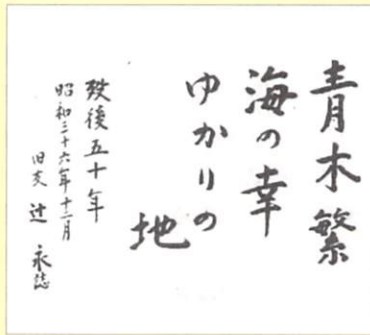 青木繁
海の幸
ゆかりの
地
歿後五十年
昭和三十六年十二月
旧友 辻 永誌